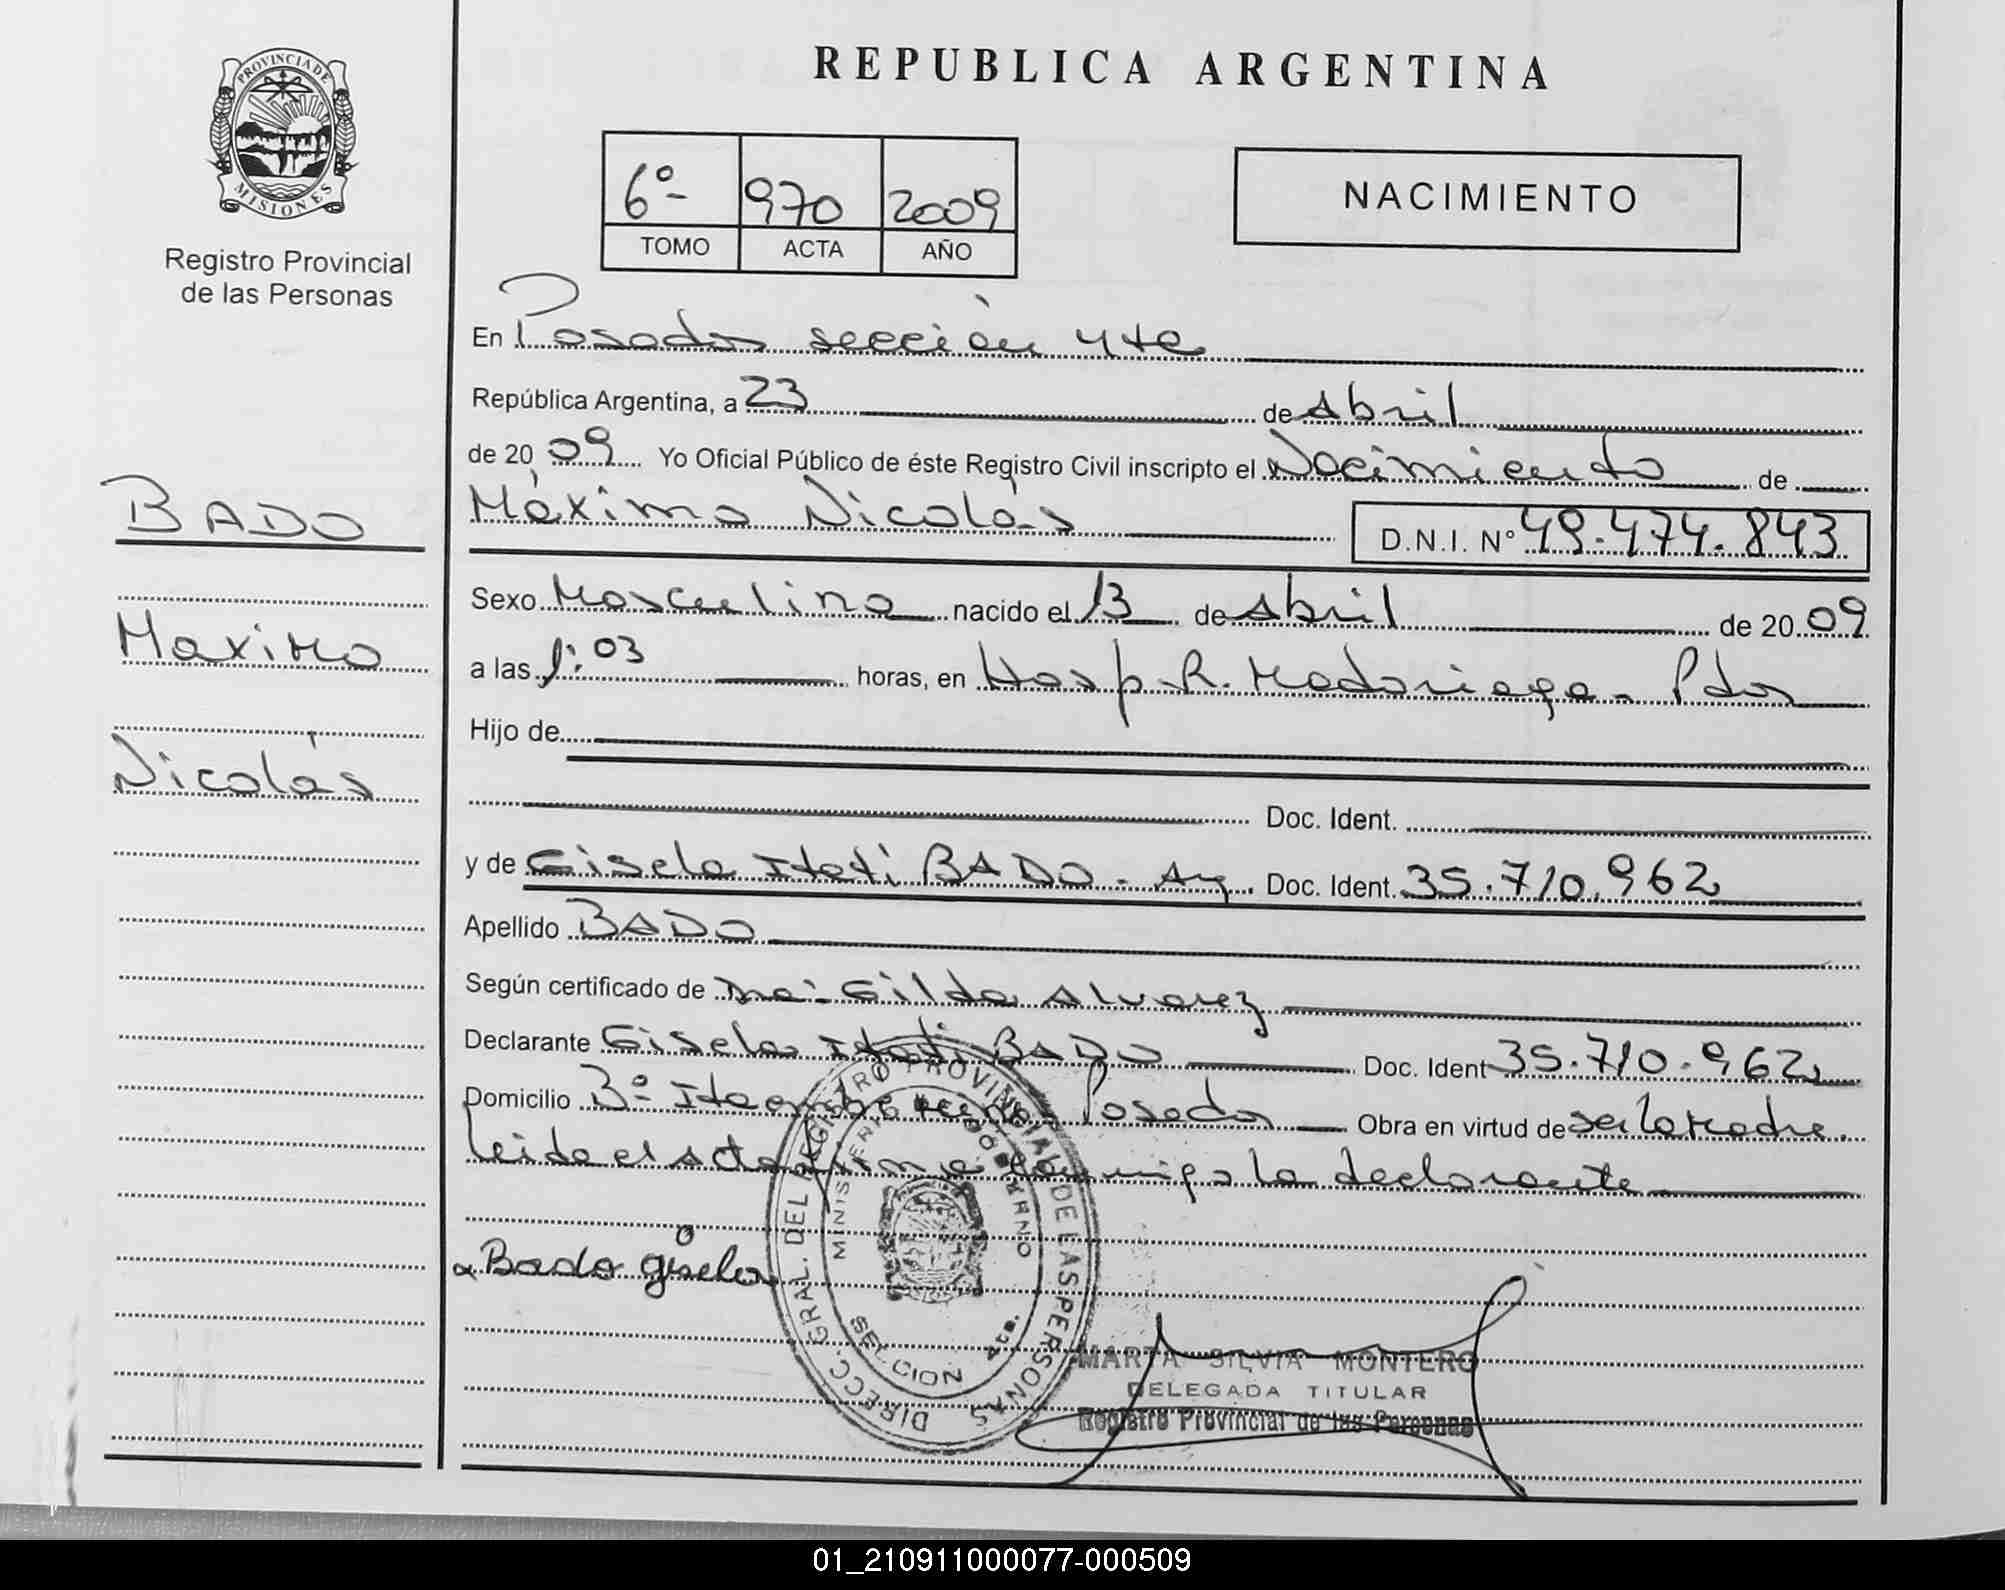 REPUBLICA ARGENTINA
PROVINCIA DE
MISIONES
Registro Provincial
de las Personas
6º 970 2009
TOMO ACTA AÑO
NACIMIENTO
En Posadas sección 4ta
República Argentina, a 23 de Abril
de 20 09 Yo Oficial Público de éste Registro Civil inscripto el Nacimiento de
Máximo Nicolás D.N.I. Nº 49.474.843
Sexo Masculino nacido el 13 de Abril de 20 09
a las 1:03 horas, en Hosp. R. Madariaga - Pdas
Hijo de
Doc. Ident.
y de Gisela Itatí BADO - Arg. Doc. Ident. 35.710.962
Apellido BADO
Según certificado de Gilda Alvarez
Declarante Gisela Itatí BADO Doc. Ident 35.710.962
Domicilio Bº Itaembé Posadas Obra en virtud de ser la madre.
Leida el acta firma conmigo la declarante
Bado gisela
BADO
Maximo
Nicolás
DIRECC. GRAL. DEL REGISTRO PROVINCIAL DE LAS PERSONAS
MINISTERIO DE GOBIERNO
SECCION 4ta.
MARTA SILVIA MONTERO
DELEGADA TITULAR
Registro Provincial de las Personas
01_210911000077-000509